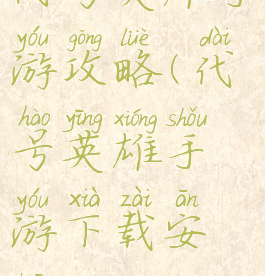 yóu gōng lüè dài
游攻略(代
hào yīng xióng shǒu
号英雄手
yóu xià zài ān
游下载安